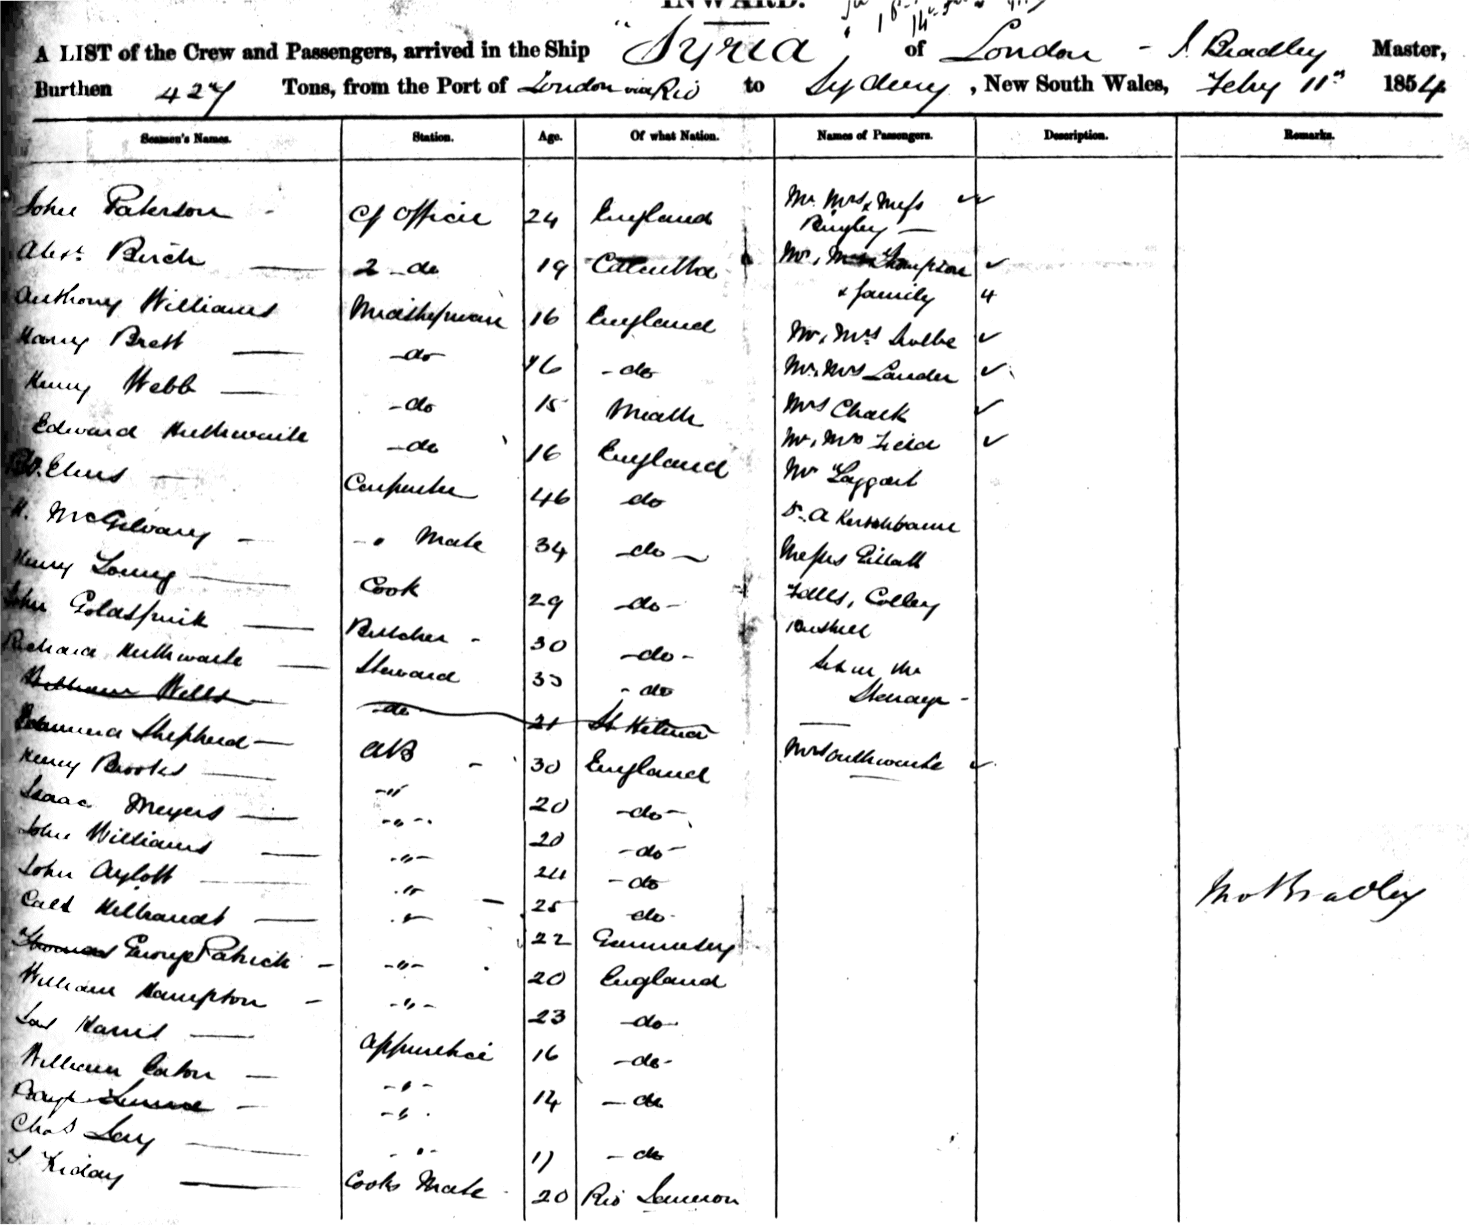 INWARD.
A LIST of the Crew and Passengers, arrived in the Ship "Syria" of London - J. Bradley Master,
Burthen 427 Tons, from the Port of London via Rio to Sydney, New South Wales, Feby 11th 1854
Seamen's Names. Station. Age. Of what Nation. Names of Passengers. Description. Remarks.
John Paterson - Cf Officer 24 England Mr Mrs & Miss
Bingley —
Alexr Birch — 2 - do 19 Calcutta Mr, Mrs Thompson
& family 4
Anthony Williams Midshipman 16 England
Harry Brett — - do 16 - do Mr, Mrs
Henry Webb — - do 15 Meath Mr, Mrs Lander
Edward Huthwaite - do 16 England Mrs Chark
Mr, Mrs Field
Elms — Carpenter 46 do Mr Taggart
H. McGilvary - " Mate 34 - do - Dr. A Kirschbaum
Henry Young — Cook 29 - do - Messrs Gillatt
John Goldspink — Butcher - 30 - do - Falls, Colley
Richard Huthwaite — Steward 33 - do
William Wells - do - 21 St Helena Steerage -
Shepherd — AB - 30 England Mrs Outhwaite
Henry Brooks — - " 20 - do -
Isaac Meyers — - " - 20 - do -
John Williams — - " - 24 - do
John Aylott — " 25 do -
Hilbrandt — - " - 22 Guernsey
Thomas George Patrick - - " - 20 England
William Hampton - - " - 23 - do -
Harris — Apprentice 16 - do -
William Eaton — - " - 14 - do
- " -
Chas — - " - 17 - do
Kidday — Cooks Mate 20 Rio
Jno Bradley